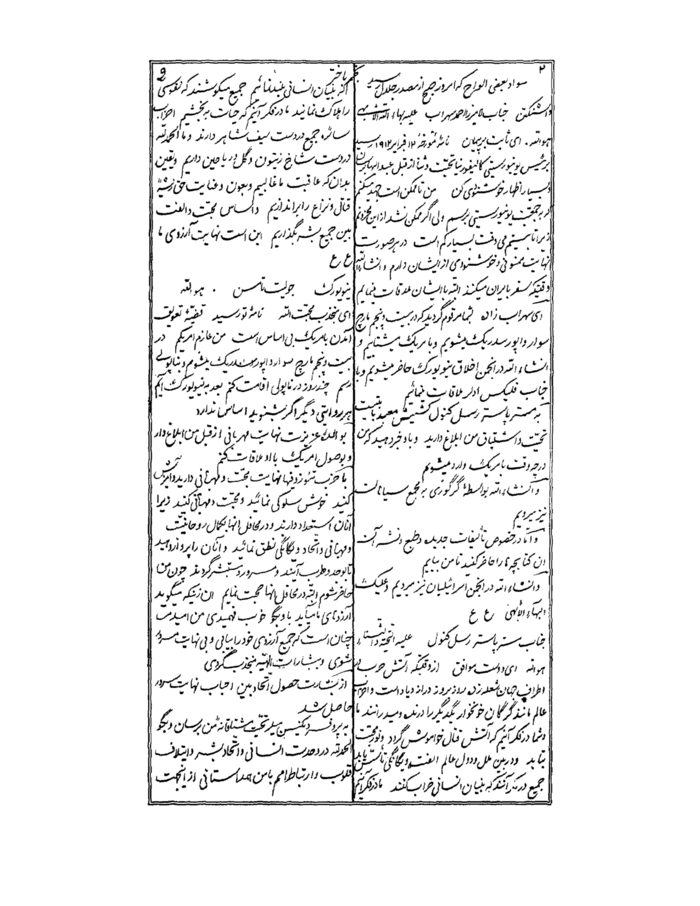 ۲
سواد بعضی الواح که امروز صبح از مصدر جلال رسید
واشنگتن جناب میرزا احمد سهراب علیه بهاء الله الابهی
هو الله. ای ثابت بر پیمان نامهٔ مورخه ۱۲ فرایر ۱۹۱۲ رسید
برئیس یونیورسیتی کالیفورنیا تحیت و ثنا از قبل عبدالبهاء برسان
و بسیار اظهار خوشنودی کن من تا ممکن است جهد میکنم
که بجهت یونیورسیتی برسم ولی اگر ممکن نشد از این محزونم
زیرا تا سیتم می وقت بسیار کم است در هر صورت
نهایت ممنونی و خوشنودی از ایشان دارم و انشاءالله
وقتیکه سفر بایران میکنند البته با ایشان ملاقات مینمایم
ای سهراب زاده بشما مرقوم گردید که در بیست و پنجم مارچ
سوار واپور سدریک میشویم و بامریک میشتابیم و
انشاءالله در انجمن اخلاق نیویورک حاضر میشویم و با
جناب فلیکس ادلر ملاقات نمائیم
به مستر پاستر رسل کنول کشیش معمدانیت
تحیت و اشتیاق من ابلاغ دارید و باو خبر دهید که من
در چه وقت بامریک وارد میشوم
و انشاءالله بواسطهٔ گرگوری بر مجمع سیاتل
نیز میرویم
و اما در خصوص تألیفات جدیده و طبع و نشر آن
این کتابچه ها را حاضر کنید تا من بیایم
و انشاءالله در انجمن اسرائیلیان نیز میرویم و علیک
البهاء الابهی ع ع
جناب مستر پاستر رسل کنول علیه التحیة والثناء
هو الله ای دوست موافق از وقتیکه آتش حرب در
اطراف جهان شعله زن روز بروز در ازدیاد است و احزاب
عالم مانند گرگان خونخوار یکدیگر را درند و میدرانند ما
و شما در فکر آنیم که آتش قتال خاموش گردد و نور محبت
بتابد و در بین ملل و دول عالم الفت و یگانگی تأسیس یابد
جمیع در فکر آنند که بنیان انسانی خراب کنند ما در فکر آنیم
که بنیان انسانی بنیاد نمائیم جمیع میکوشند که نفوسی
را هلاک نمایند ما در فکر آنیم که حیات بخشیم احزاب
سائره جمیع در دست سیف شاهر دارند و ما الحمدلله
در دست شاخ زیتون و گل و ریاحین داریم و یقین
بدان که عاقبت ما غالبیم و بعون و عنایت حق ریشهٔ
قتال و نزاع را براندازیم و اساس محبت و الفت
بین جمیع بشر بگذاریم این است نهایت آرزوی ما
ع ع
نیویورک جولیت تامسن . هو الله
ای منجذب محبت الله نامهٔ تو رسید قضیهٔ تعویق
آمدن بامریک بی اساس است من عازم امریکم در
بیست و پنجم مارچ سوار واپور سدریک میشوم و بناپولی
رسم چند روز در ناپولی اقامت کنم بعد به نیویورک آیم
هر روایتی دیگر اگر شنوید اساس ندارد
بوالدهٔ عزیزت نهایت مهربانی از قبل من ابلاغ دار
و بوصول امریک با او ملاقات کنم
با حزب تئوزوفیها نهایت محبت و مهربانی دارید و آمیزش
کنید خوش سلوکی نمائید و محبت و مهربانی کنید زیرا
آنان استعداد دارند و در محافل آنها بکمال روحانیت
و مهربانی و اتحاد و یگانگی نطق نمائید و آنان را پرواز دهید
تا بوجد و طرب آیند و مسرور و مستبشر گردند چون من
حاضر شوم البته در محافل آنها صحبت نمایم آن زنیکه میگوید
آرزوهای ما میآید باو بگو خوب فهمیدی من امیدم
چنان است که جمیع آرزوی خود را بیابی و بی نهایت مسرور
شوی و ببشارات الهیه منجذب گردی
از بشارت حصول اتحاد بین احباب نهایت سرور
حاصل شد
به پروفسر دیکنسن میلر تحیت مشتاقانه من برسان و بگو
الحمدلله در وحدت انسانی و اتحاد بشر و ایتلاف
قلوب و ارتباط امم با من همداستانی از اینجهت